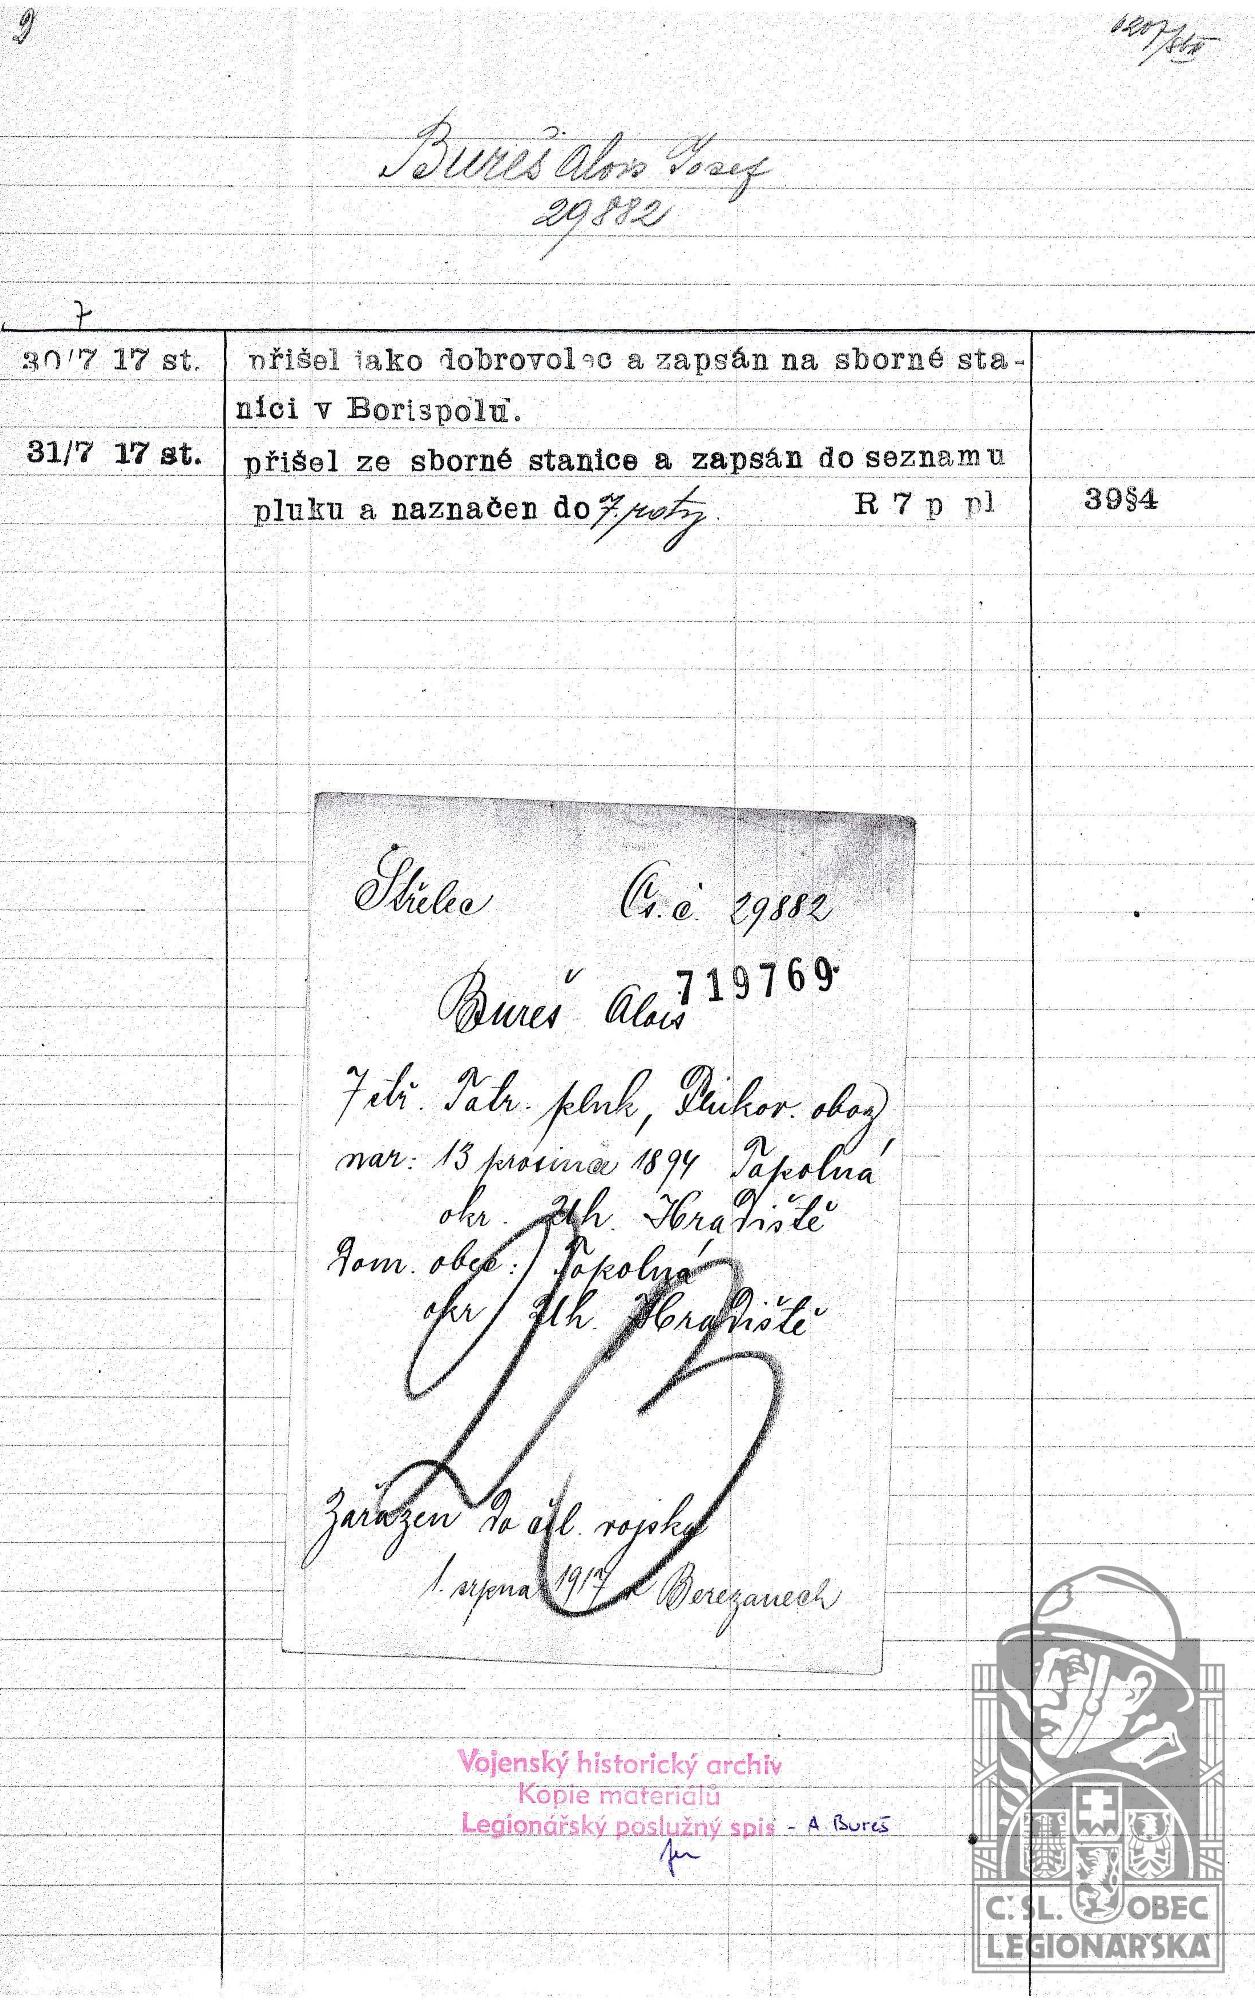 Bureš Alois Josef
29882
7
30/7 17 st. přišel jako dobrovolec a zapsán na sborné sta-
nici v Borispolu.
31/7 17 st. přišel ze sborné stanice a zapsán do seznamu
pluku a naznačen do 7. roty. R 7 p pl 39§4
Střelec Čs. č. 29882
719769
Bureš Alois
7 stř. Tatr. pluk, Plukov. oboz
nar: 13 prosince 1894 Topolná
okr. Uh. Hradiště
Dom. obec: Topolná
okr Uh. Hradiště
Zařazen do čsl. vojska
1. srpna 1917 v Berezanech
Vojenský historický archiv
Kopie materiálů
Legionářský poslužný spis - A Bureš
Č. SL. OBEC
LEGIONÁŘSKÁ